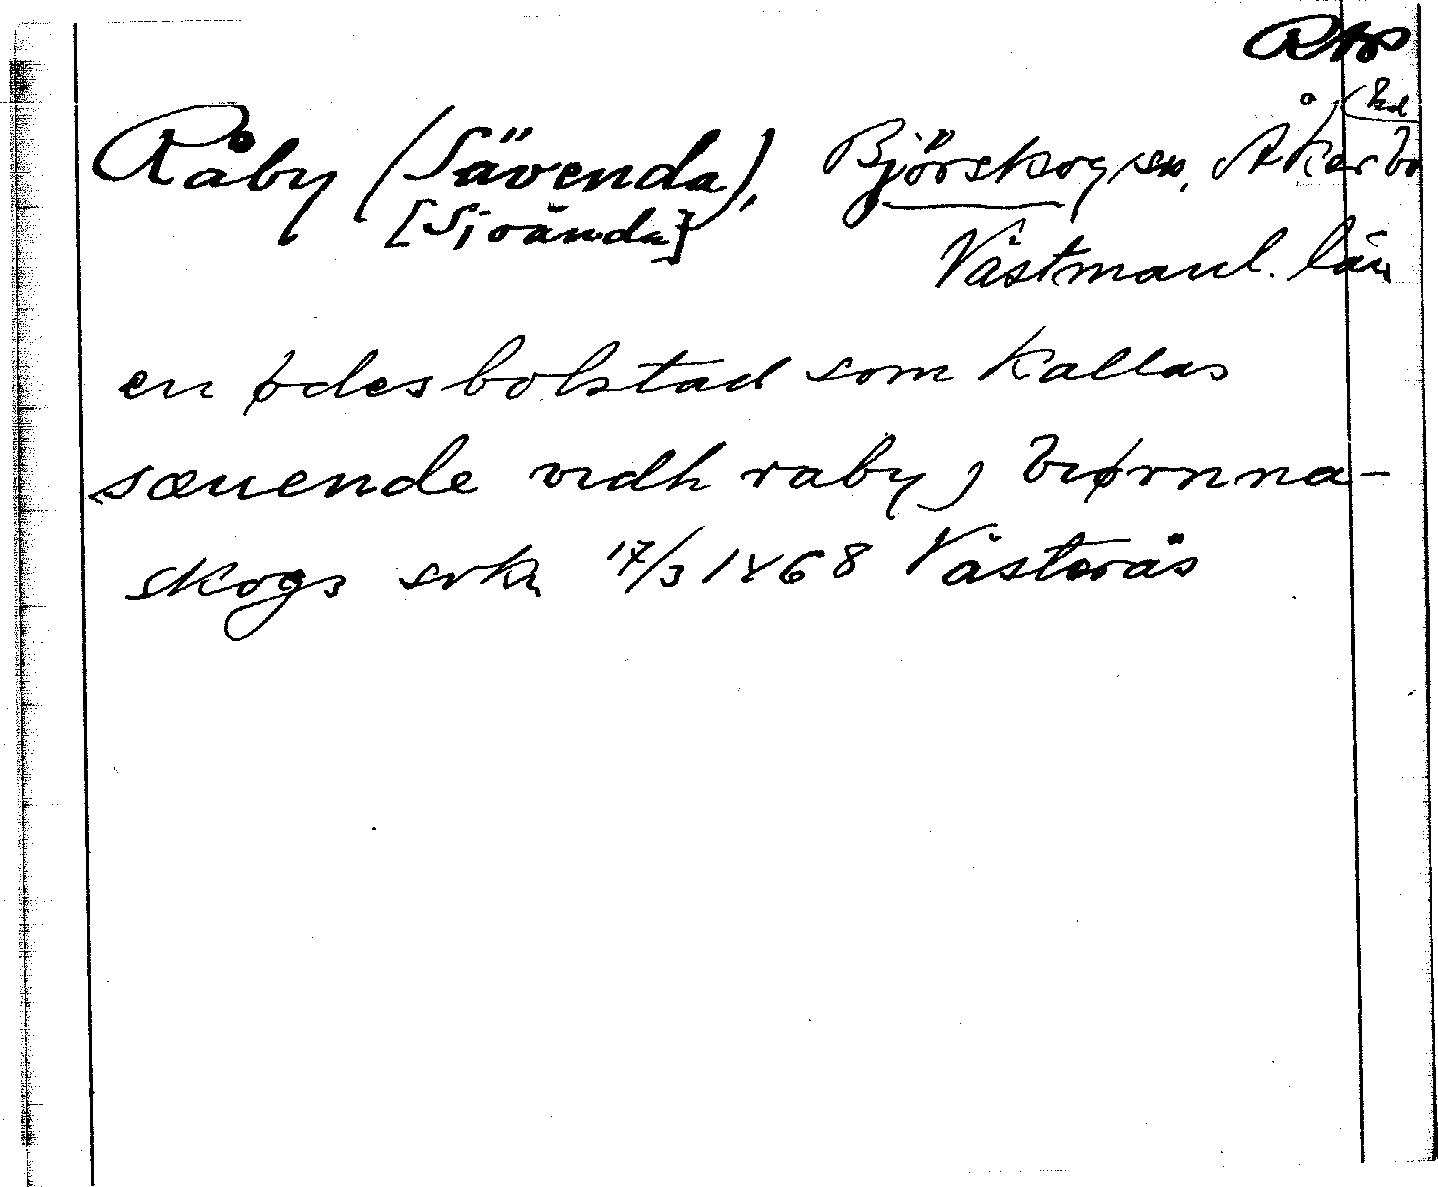 RAP
Råby (Sävenda), Björskog sn, Åkerbo hd
[Sjöända]
Västmanl. län
en ødesbolstad som kallas
sæuende vidh raby j biørnna-
skogs sokn 17/3 1468 Västerås